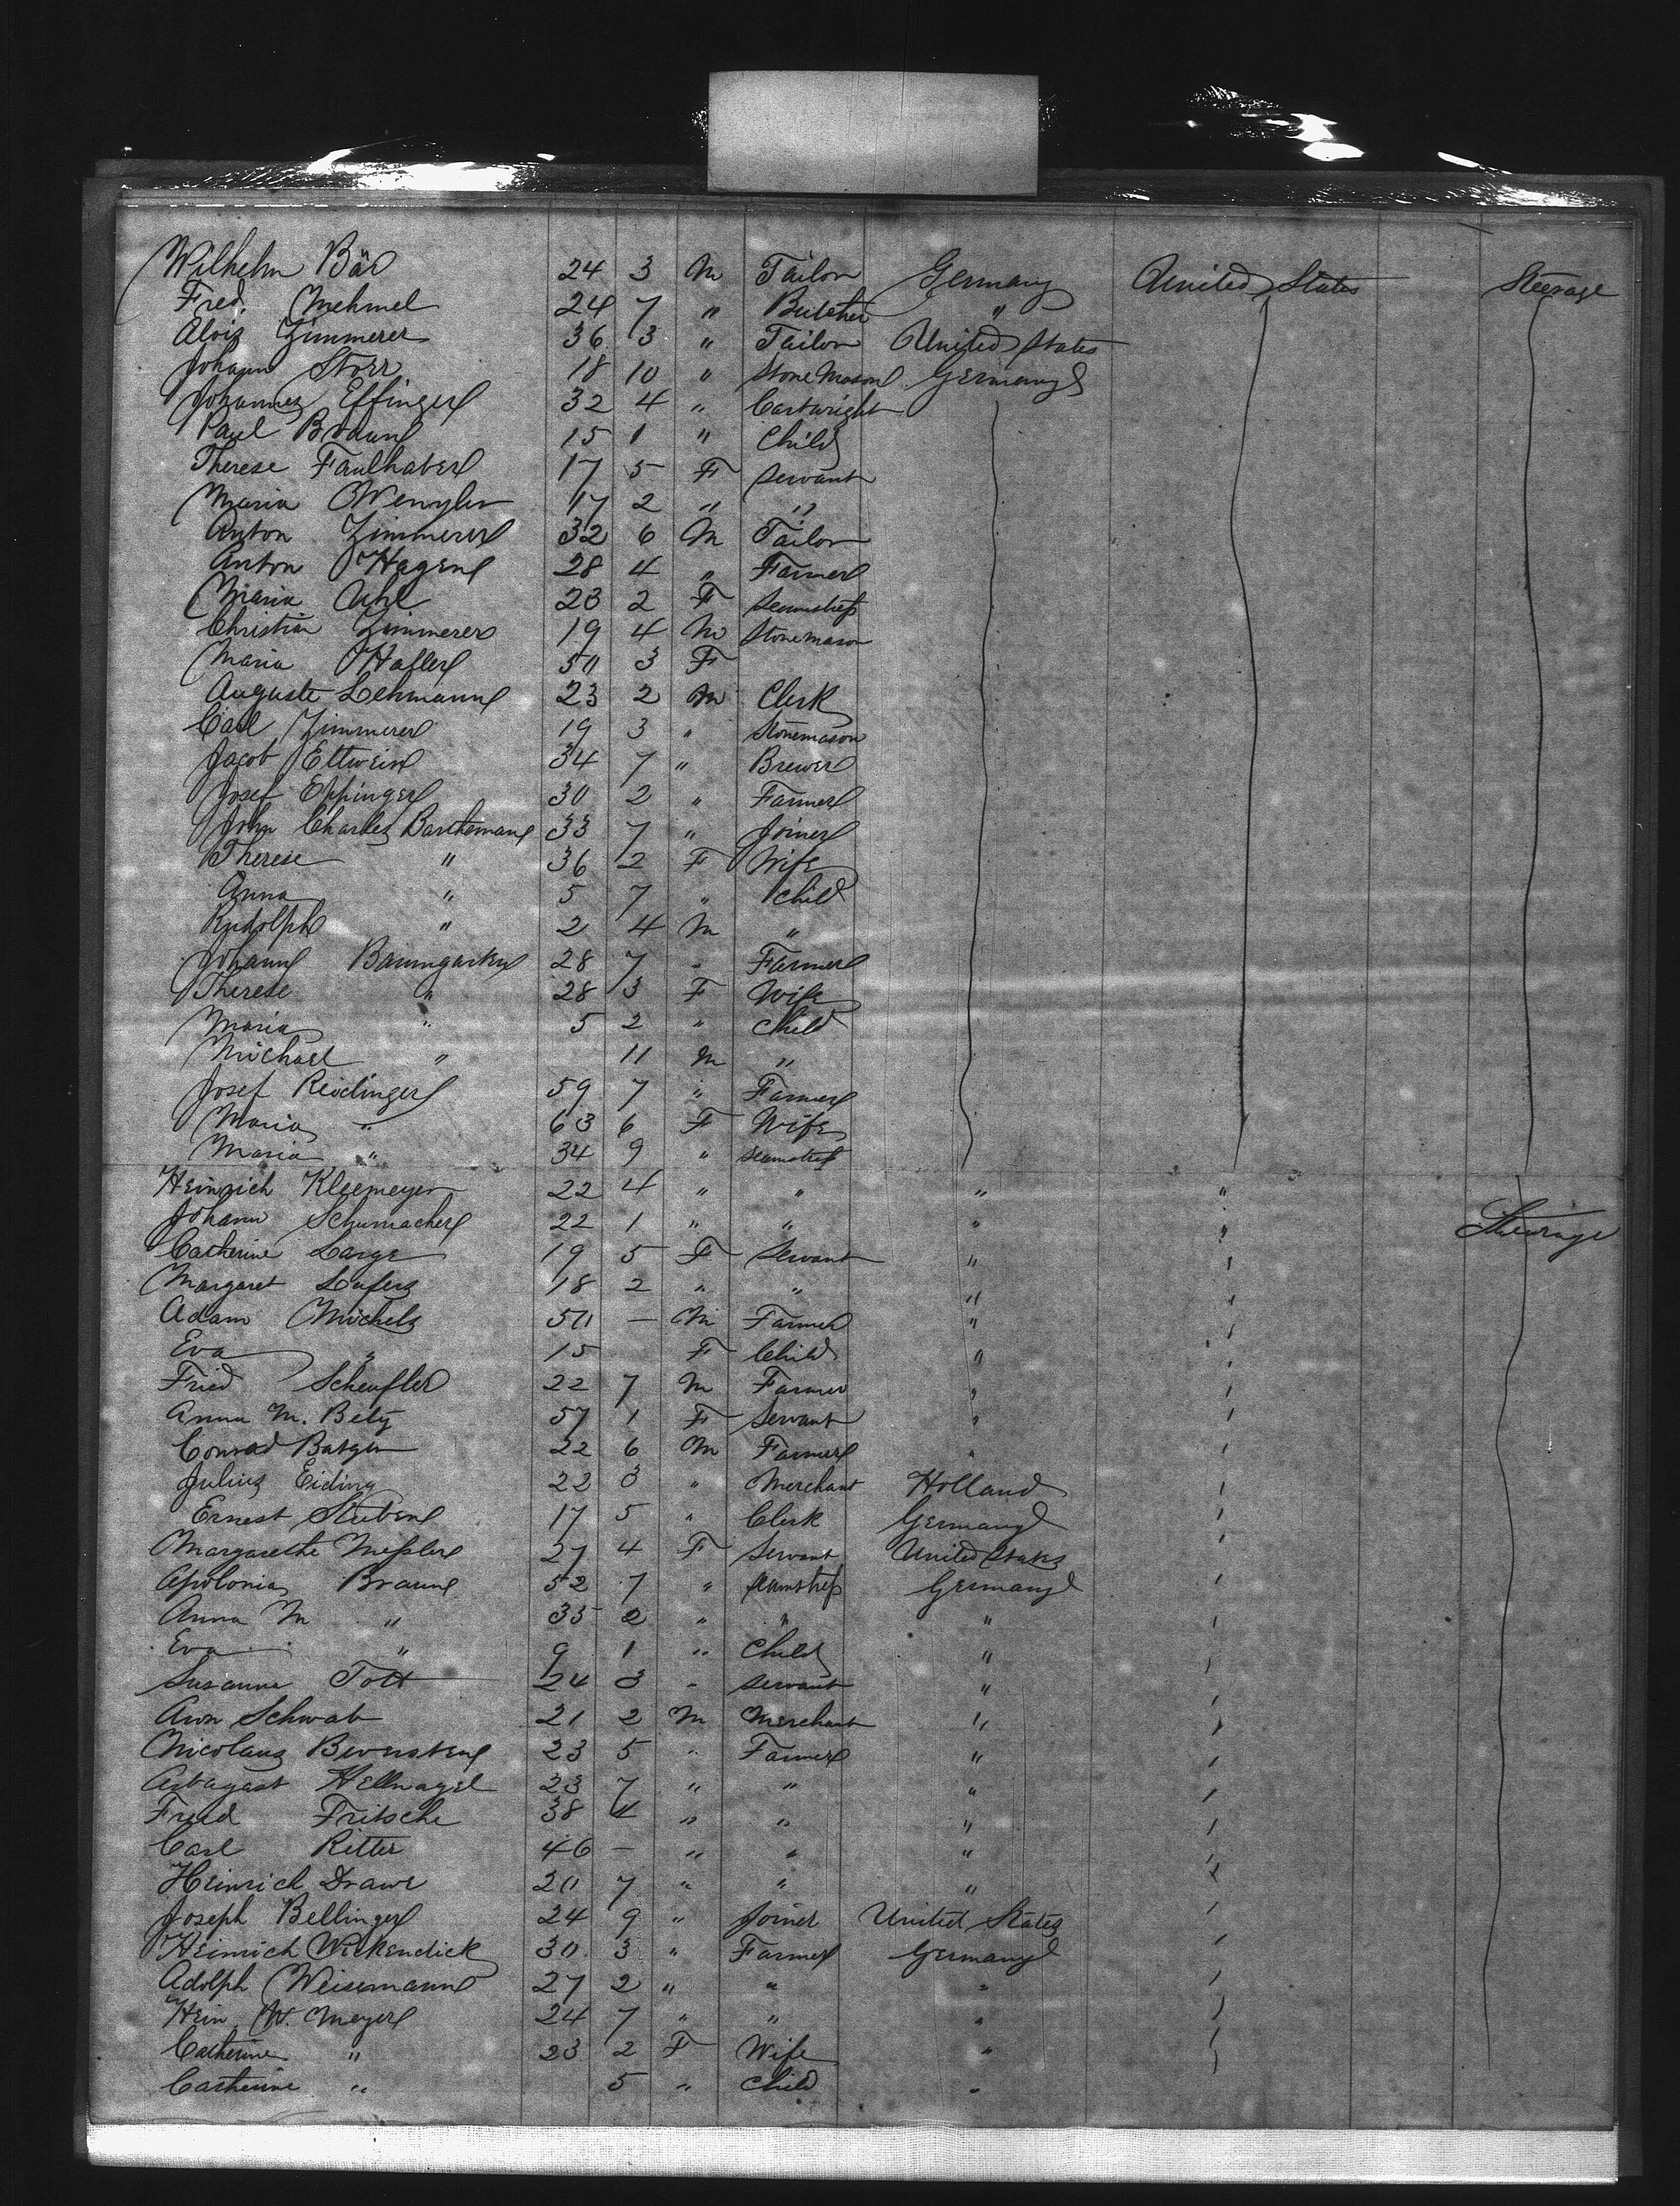 Wilhelm Bär 24 3 M Tailor Germany United States Steerage
Fred. Mehmel 24 7 " Butcher "
Alois Zimmerer 36 3 " Tailor United States
Johann Storr 18 10 " Stone Mason Germany
Johannes Effinger 32 4 " Cartwright
Paul Braun 15 1 " Child
Therese Faulhaber 17 5 F Servant
Maria Wengler 17 2 " "
Anton Zimmerer 32 6 M Tailor
Anton Hagen 28 4 " Farmer
Maria Uhl 23 2 F Seamstress
Christian Zimmerer 19 4 M Stonemason
Maria Hafler 50 3 F
Auguste Lehmann 23 2 M Clerk
Carl Zimmerer 19 3 " Stonemason
Jacob Ettwein 34 7 " Brewer
Josef Eppinger 30 2 " Farmer
John Charles 33 7 " Joiner
Therese " 36 2 F Wife
Anna " 5 7 " Child
Rudolph " 2 4 M "
Johann Baumgarten 28 7 " Farmer
Therese " 28 3 F Wife
Maria " 5 2 " Child
Michael " 11 M "
Josef Reidinger 59 7 " Farmer
Maria " 63 6 F Wife
Maria " 34 9 " Seamstress
Heinrich Kleemeyer 22 4 " " " "
Johann Schumacher 22 1 " " " " Steerage
Catherine Lange 19 5 F Servant " "
Margaret 18 2 " " " "
Adam Michels 50 — M Farmer " "
Eva " 15 F Child " "
Fried Scheufler 22 7 M Farmer " "
Anna M. Betz 57 1 F Servant " "
Conrad 22 6 M Farmer " "
Julius Eiding 22 3 " Merchant Holland "
Ernest Stuben 17 5 " Clerk Germany "
Margarethe Messler 27 4 F Servant United States "
Apolonia Braun 52 7 " Seamstress Germany "
Anna M " 35 2 " " " "
Eva " 9 1 " Child " "
Susanna Tott 24 3 " Servant " "
Aron Schwab 21 2 M Merchant " "
Nicolaus 23 5 " Farmer " "
Arbagast Hellnagel 23 7 " " " "
Fried Fritsche 38 4 " " " "
Carl Ritter 46 — " " " "
Heinrich Drawe 20 7 " " " "
Joseph Bellinger 24 9 " Joiner United States "
Heinrich Wickendick 30 3 " Farmer Germany "
Adolph Weisemann 27 2 " " " "
Hein. W. Meyer 24 7 " " " "
Catherine " 23 2 F Wife " "
Catherine " 5 " Child "